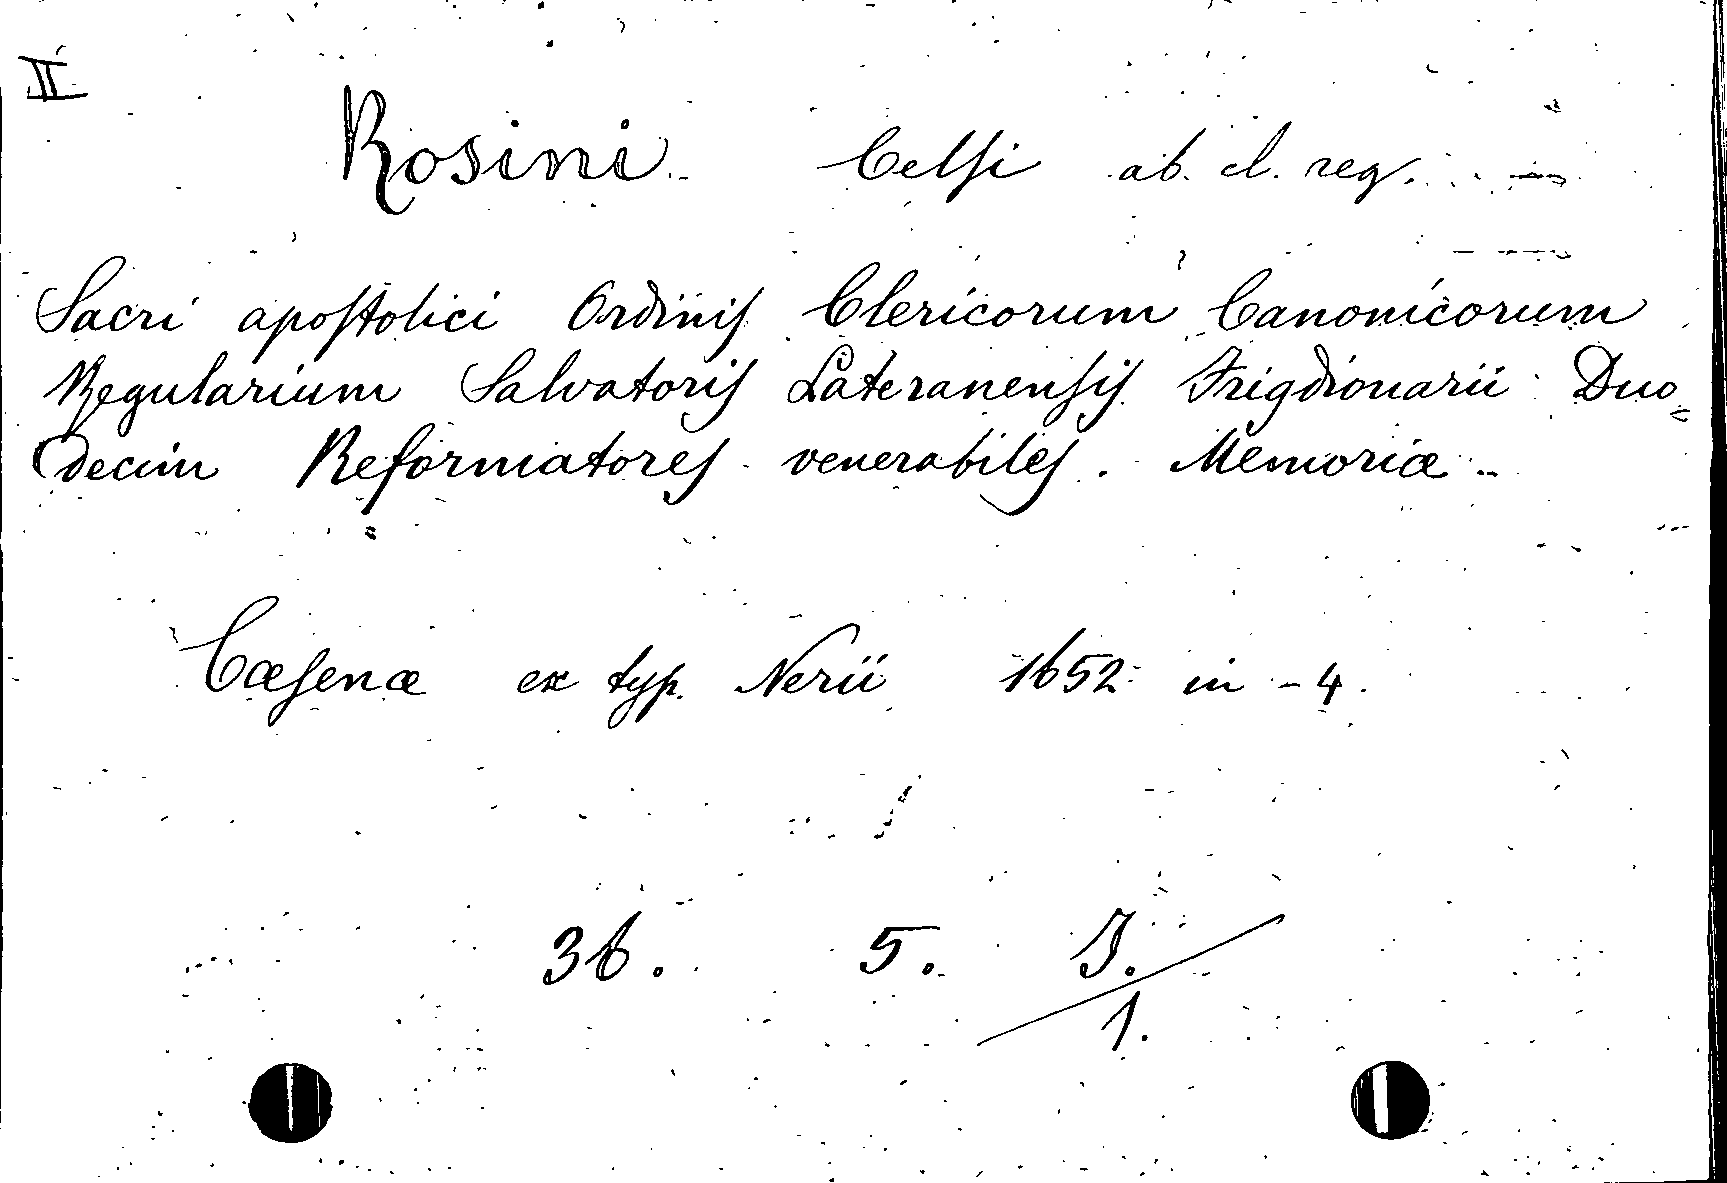 II
Rosini Celsi ab. cl. reg.
Sacri apostolici Ordinis Clericorum Canonicorum
Regularium Salvatoris Lateranensis Frigdionarii Duo=
decim Reformatores venerabiles. Memoriæ
Cæsenæ ex typ. Nerii 1652 in-4.
36. 5. J./1.